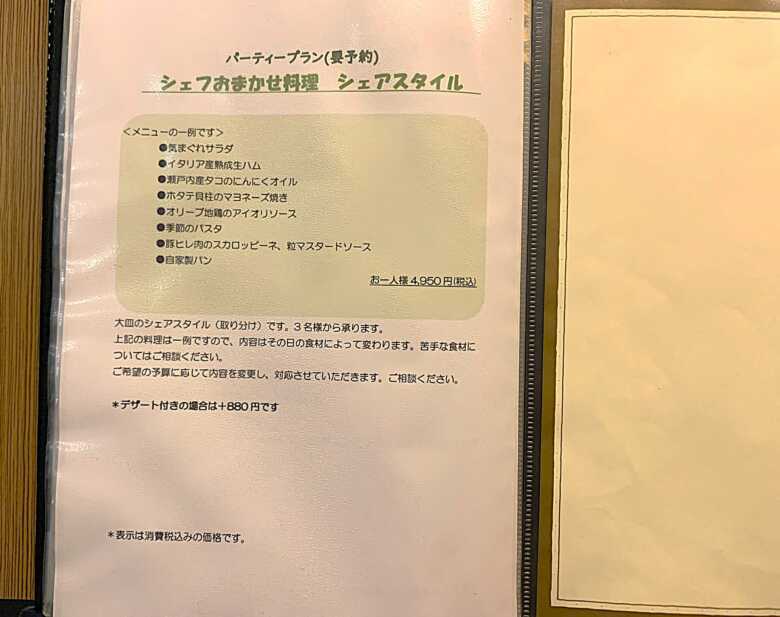 パーティープラン(要予約)
シェフおまかせ料理　シェアスタイル
＜メニューの一例です＞
●気まぐれサラダ
●イタリア産熟成生ハム
●瀬戸内産タコのにんにくオイル
●ホタテ貝柱のマヨネーズ焼き
●オリーブ地鶏のアイオリソース
●季節のパスタ
●豚ヒレ肉のスカロッピーネ、粒マスタードソース
●自家製パン
お一人様 4,950 円(税込)
大皿のシェアスタイル（取り分け）です。３名様から承ります。
上記の料理は一例ですので、内容はその日の食材によって変わります。苦手な食材に
ついてはご相談ください。
ご希望の予算に応じて内容を変更し、対応させていただきます。ご相談ください。
＊デザート付きの場合は＋880 円です
＊表示は消費税込みの価格です。